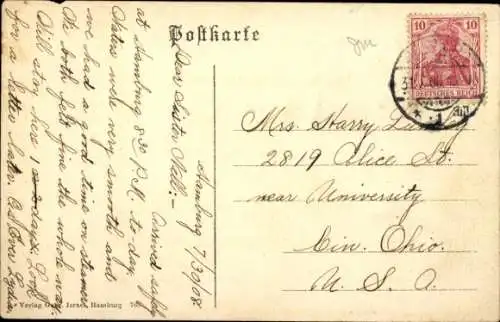 Postkarte
10 10
DEUTSCHES REICH
Hamburg 7/30/08
Dear Sister Nell:-
Arrived safely
at Hamburg 8 30 P.M. to-day.
Water were very smooth and
we had a good time on steamer
We both felt fine the whole way.
Will stay here 1 2 days. Look
for a letter later. As Ever
Mrs. Harry
2819 Alice St.
near University
Cin. Ohio.
U. S. A.
Verlag Hamburg